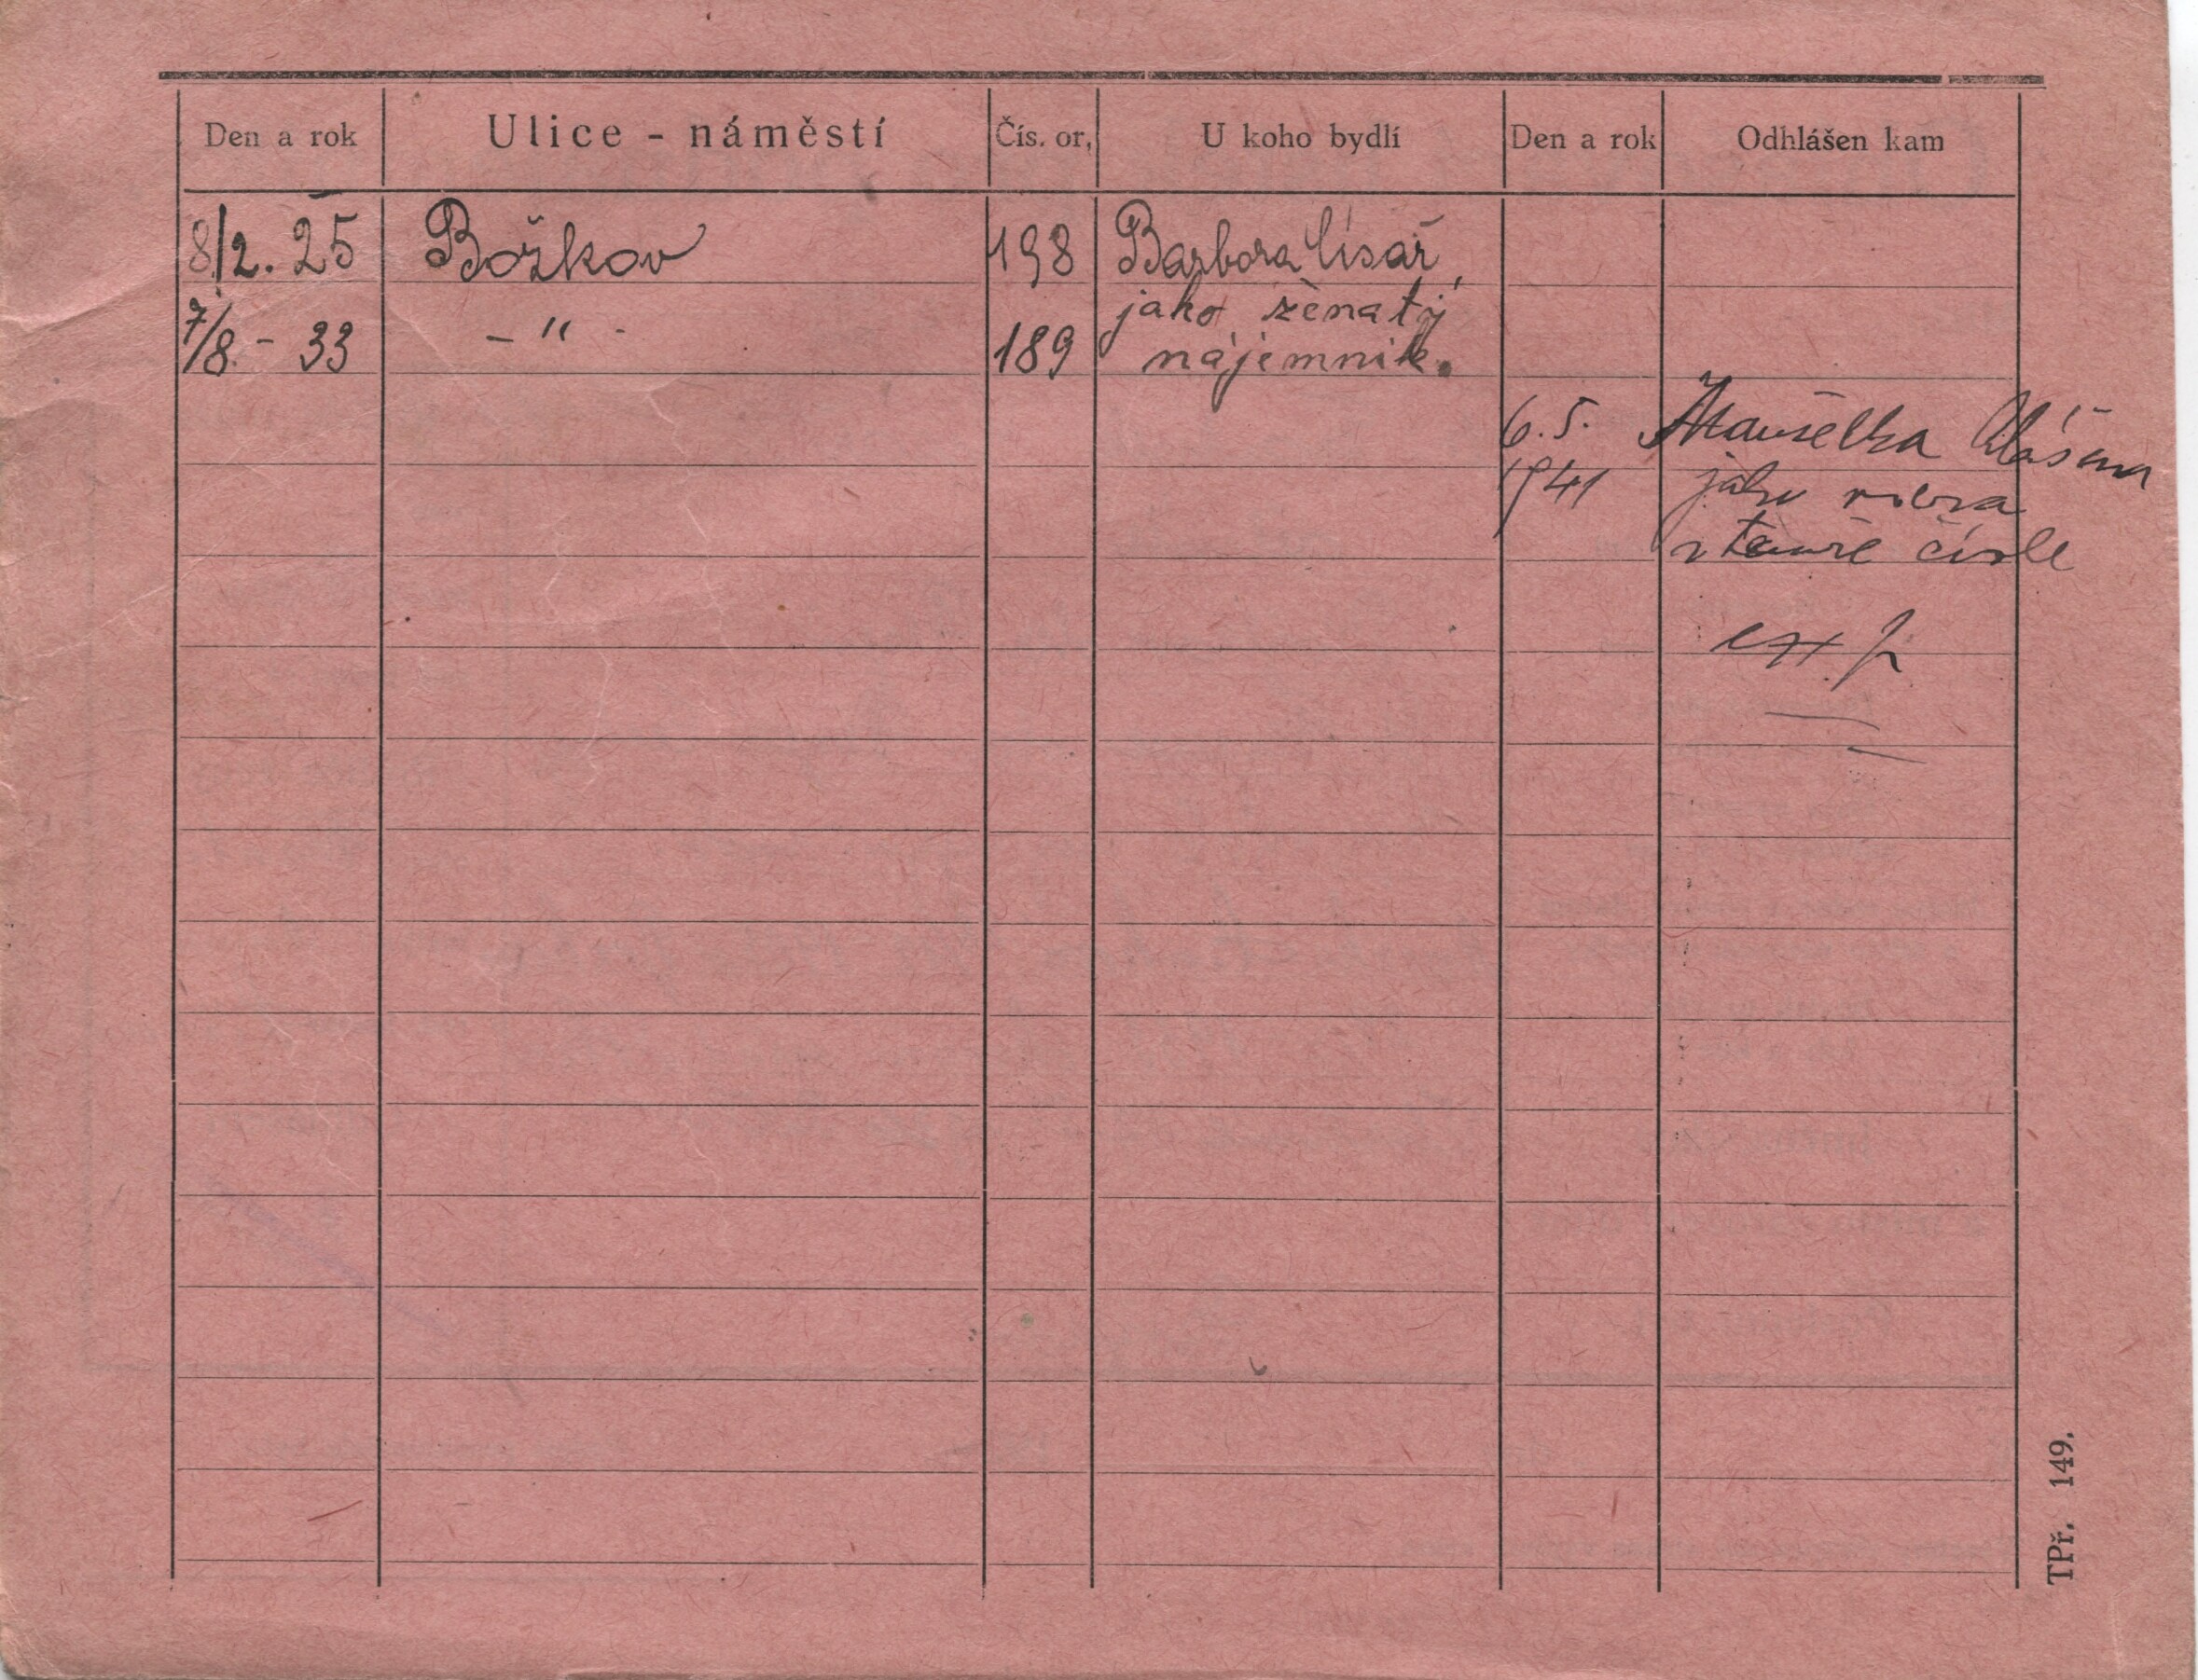 Den a rok Ulice - náměstí Čís. or. U koho bydlí Den a rok Odhlášen kam
8/2. 25 Božkov 198 Barbora Císař
jako ženatý
7/8. - 33 - " - 189 nájemník.
6.5. Manželka hlášena
1941 jako vdova
v temže čísle
TPř. 149.